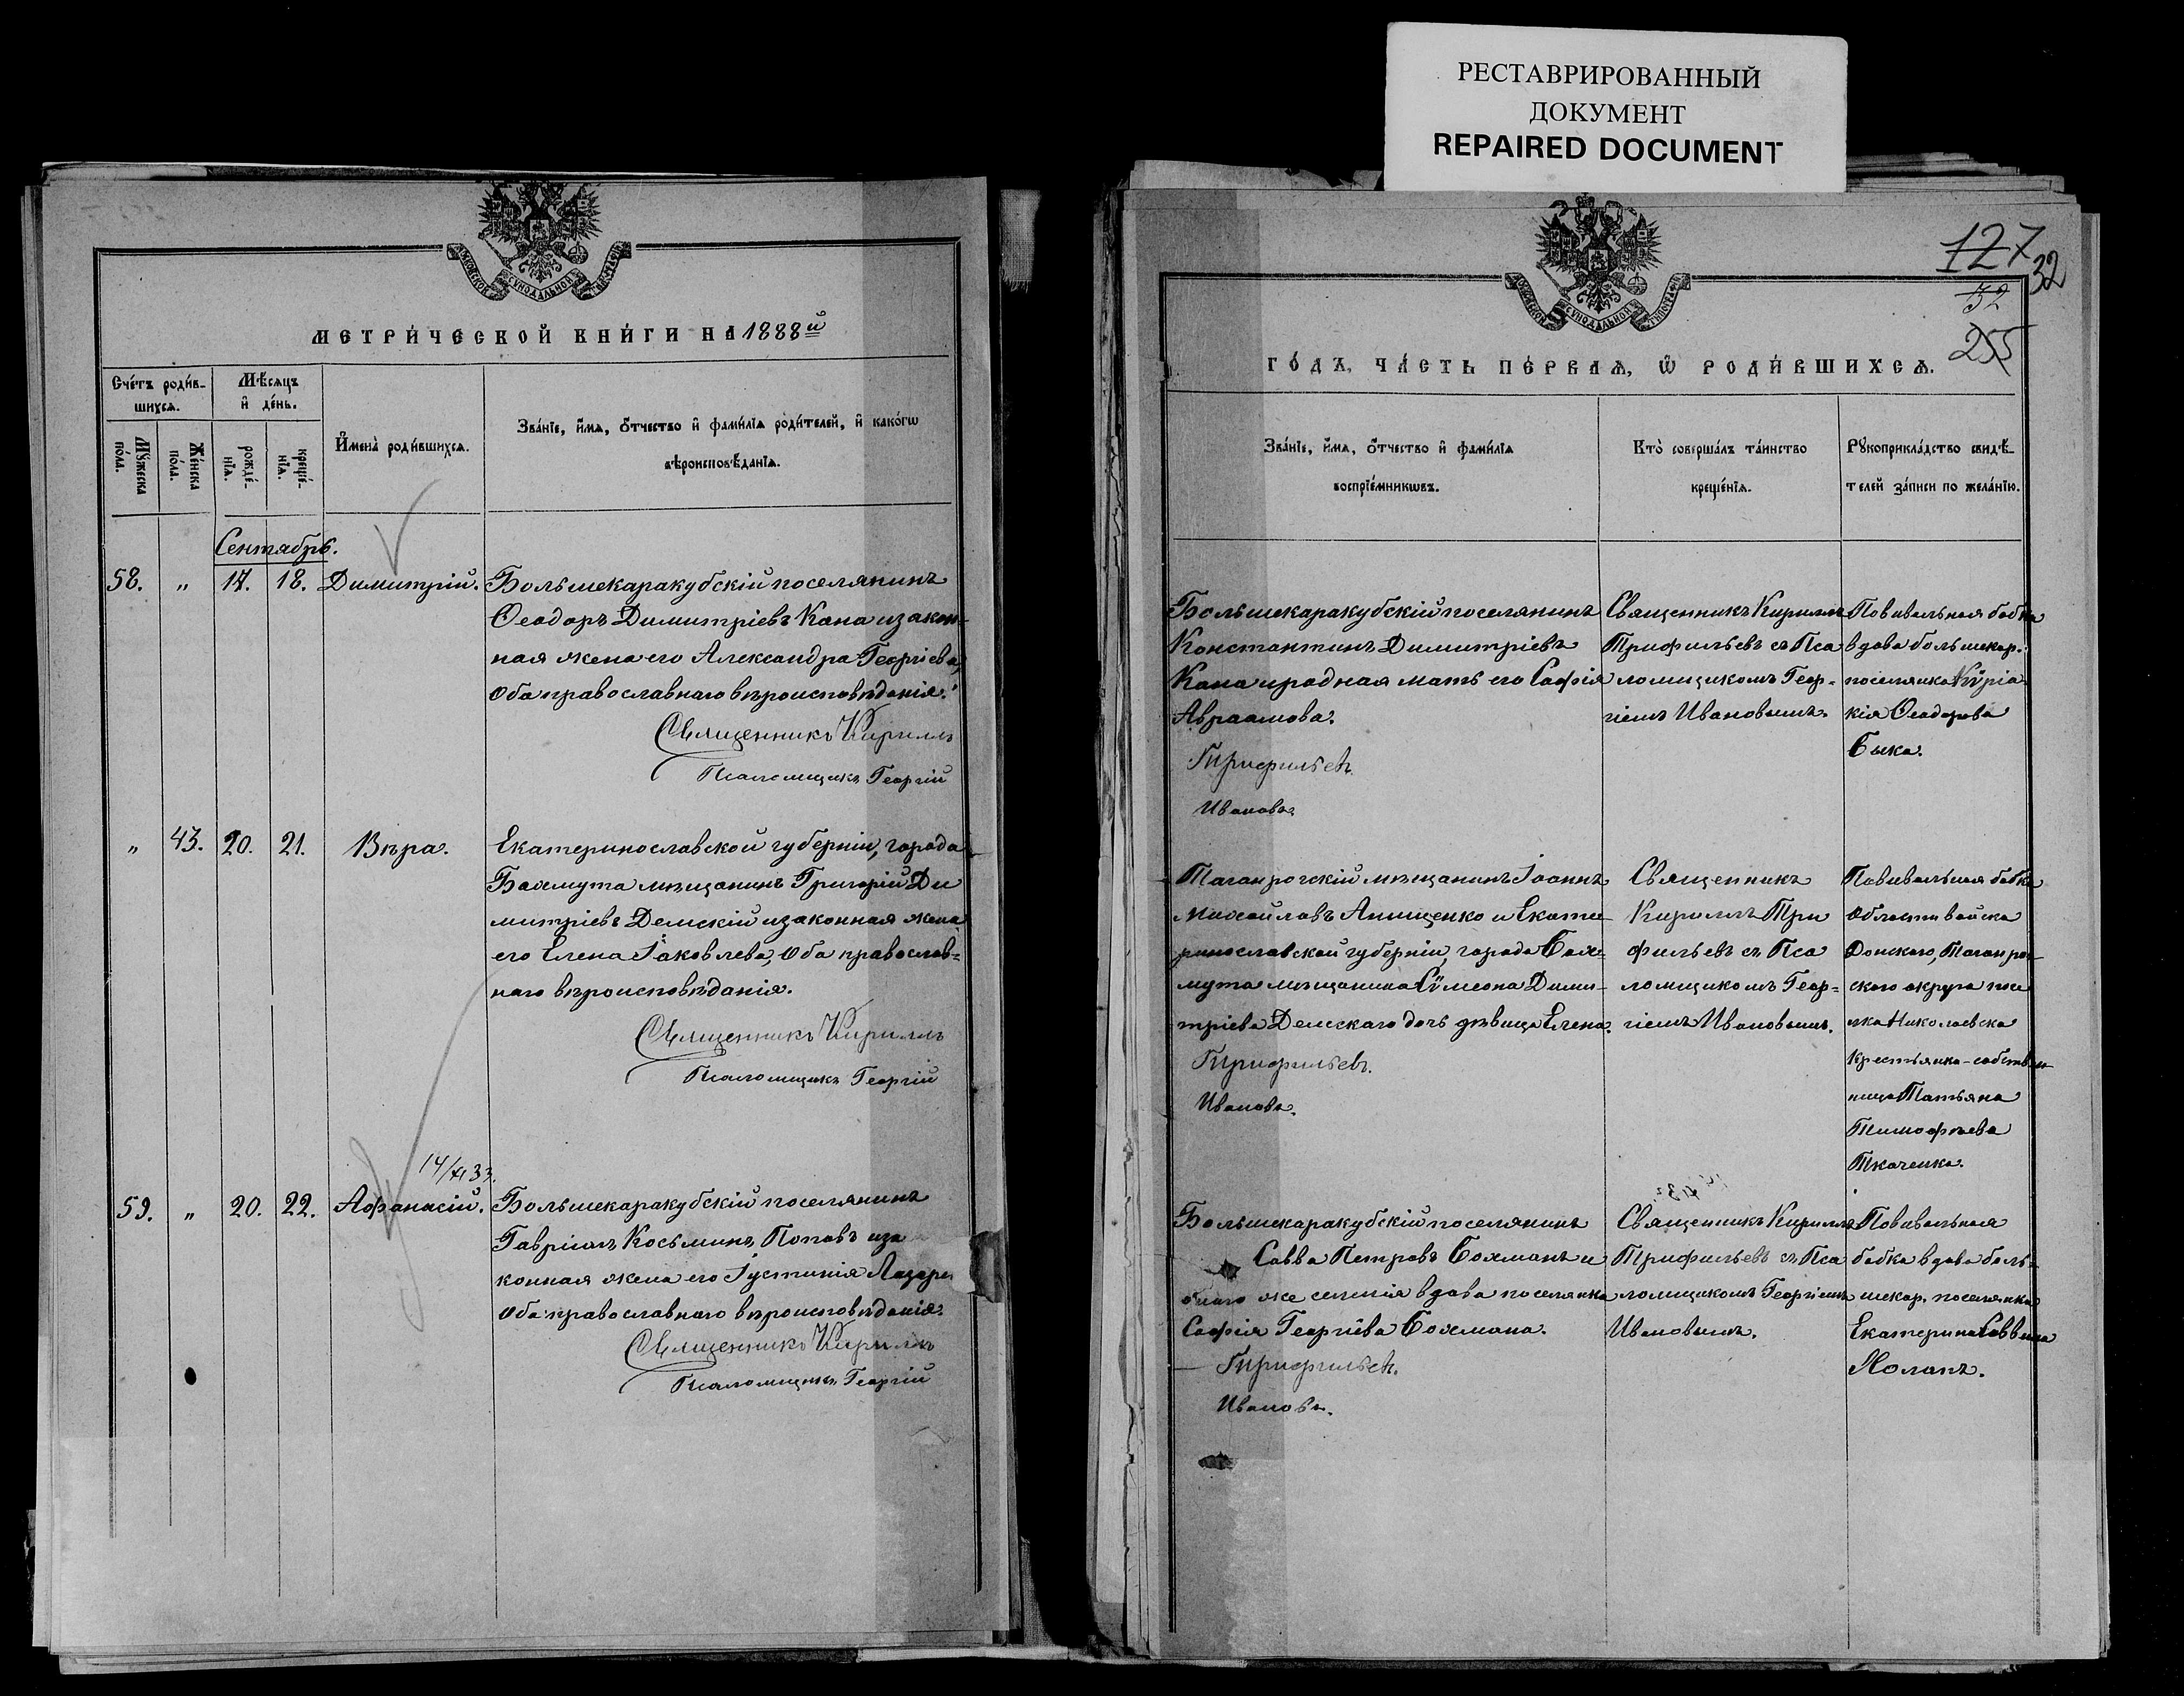 РЕСТАВРИРОВАННЫЙ
ДОКУМЕНТ
REPAIRED DOCUMENT
МЕТРИ́ЧЕСКОЙ КНИ́ГИ НА 1888й
Сче́тъ роди́в-
шихсѧ.
Мѣ́сяцъ
и де́нь.
Мꙋ́жеска
по́ла.
Же́нска
по́ла.
рожде́-
нїѧ.
креще́-
нїѧ.
Имена̀ роди́вшихсѧ.
Зва́нїе, и́мѧ, ѻ҆́тчество и фами́лїѧ роди́телей, и како́гѡ
вѣроисповѣ́данїѧ.
Сентябрь.
58. „ 17. 18. Димитрій. Большекаракубскій поселянинъ
Ѳеодоръ Димитріевъ Кана и закон-
ная жена его Александра Георгіева,
оба православнаго вѣроисповѣданія.
Священникъ Кириллъ
Псаломщикъ Георгій
„ 43. 20. 21. Вѣра. Екатеринославской губерніи, города
Бахмута мѣщанинъ Григорій Ди
митріевъ Демскій и законная жена
его Елена Іаковлева, оба православ=
наго вѣроисповѣданія.
Священникъ Кириллъ
Псаломщикъ Георгій
14/XI 33.
59. „ 20. 22. Аѳанасій. Большекаракубскій поселянинъ
Гавріилъ Косьминъ Поповъ и за
конная жена его Іустинія Лазаре
оба православнаго вѣроисповѣданія.
Священникъ Кириллъ
Псаломщикъ Георгій
127
32
32
255
ГО́ДЪ, ЧА́СТЬ ПЕ́РВАѦ, Ѿ РОДИ́ВШИХСѦ.
Зва́нїе, и́мѧ, ѻ҆́тчество и фами́лїѧ
воспрїе́мникѡвъ.
Кто̀ соверша́лъ та́инство
креще́нїѧ.
Рꙋкоприкла́дство свидѣ́-
телей за́писи по жела́нїю.
Большекаракубскій поселянинъ
Константинъ Димитріевъ
Кана и родная мать его Софія
Авраамова.
Трифильевъ.
Ивановъ.
Священникъ Кириллъ
Трифильевъ съ Пса
ломщикомъ Геор-
гіемъ Ивановымъ.
Повивальная бабка
вдова большекар.
поселянка Кѵріа-
кія Ѳеодорова
Быка.
Таганрогскій мѣщанинъ Іоаннъ
Михайловъ Анищенко и Екате-
ринославской губерніи, города Бах=
мута мѣщанина Сѵмеона Дими-
тріева Демскаго дочь дѣвица Елена.
Трифильевъ.
Ивановъ.
Священникъ
Кириллъ Три
фильевъ съ Пса
ломщикомъ Геор=
гіемъ Ивановымъ.
Повивальная бабка
Области войска
Донскаго, Таганрог-
скаго округа посе
лка Николаевска
крестьянка-собствен-
ница Татьяна
Тимоѳѣева
Ткаченка.
Большекаракубскій поселянинъ
Савва Петровъ Бохманъ и
того же селенія вдова поселянка
Софія Георгіева Бохмана.
Трифильевъ.
Ивановъ.
Священникъ Кириллъ
Трифильевъ съ Пса
ломщикомъ Георгіемъ
Ивановымъ.
Повивальная
бабка вдова боль=
шекар. поселянка
Екатерина Саввина
Холапъ.